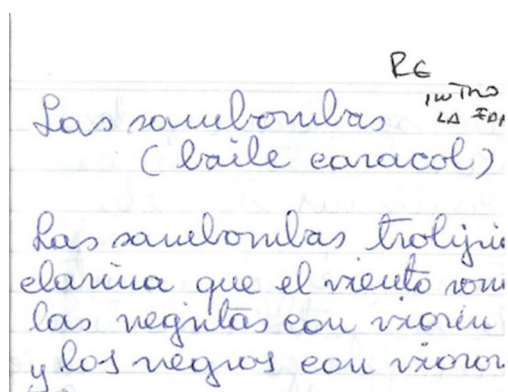 RE
INTRO
LA
Las sambombas
(baile caracol)
Las sambombas
clarina que el viento
las negritas con viorin
y los negros con vioron